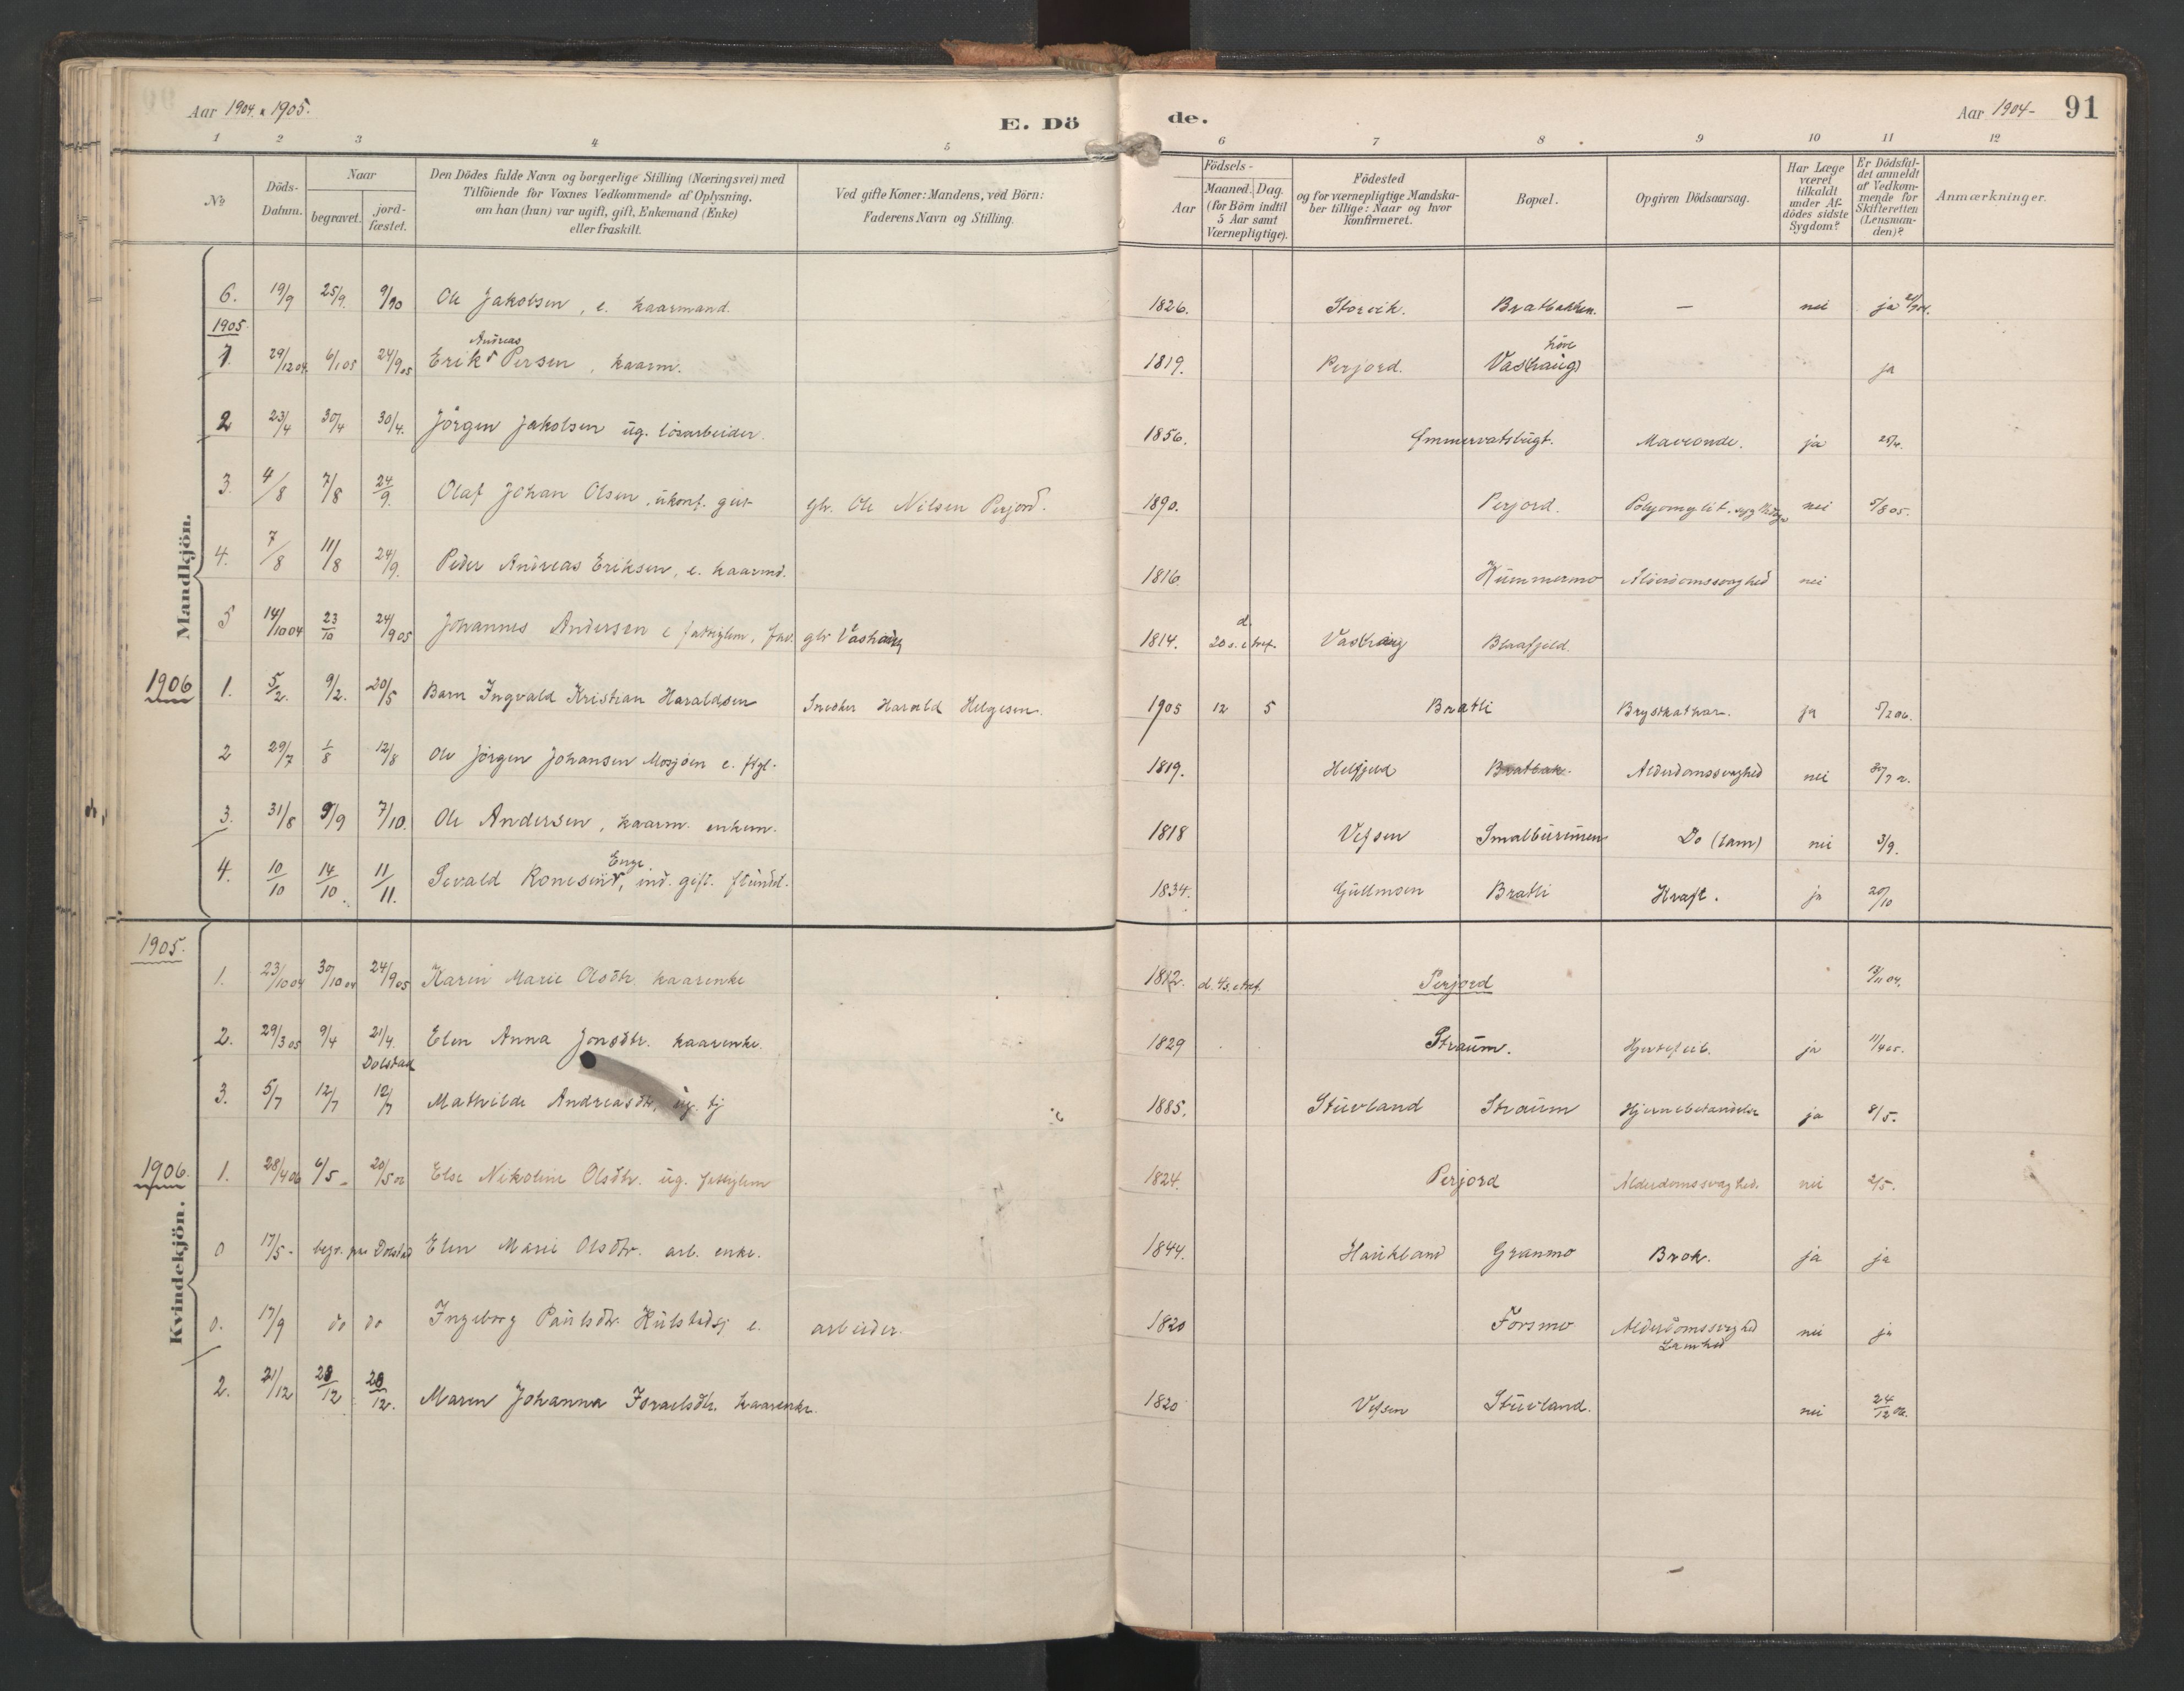 Aar 1904 & 1905.
E. Dö
de.
Aar 1904- 91
1 2 3 4 5 6 7 8 9 10 11 12
No
Döds-Datum.
Naar
begravet.
jord-fæstet.
Den Dödes fulde Navn og borgerlige Stilling (Næringsvei) med
Tilföiende for Voxnes Vedkommende af Oplysning,
om han (hun) var ugift, gift, Enkemand (Enke)
eller fraskilt.
Ved gifte Koner: Mandens, ved Börn:
Faderens Navn og Stilling.
Födsels-
Aar
Maaned. Dag.
(for Börn indtil
5 Aar samt
Værnepligtige).
Födested
og for værnepligtige Mandska-
ber tillige: Naar og hvor
konfirmeret.
Bopæl.
Opgiven Dödsaarsag.
Har Læge
været
tilkaldt
under Af-
dödes sidste
Sygdom?
Er Dödsfal-
det anmeldt
af Vedkom-
mende for
Skifteretten
(Lensman-
den)?
Anmærkninger.
Mandkjön.
6. 19/9 25/9. 9/10 Ole Jakobsen, e. kaarmand. 1826. Storvik. Bratbakken. — nei ja
1905.
1. 29/12 04. 6/1 05 24/9 05 Erik Andreas Persen, kaarm. 1819. Perjord. Vashaug ja
2 23/4 30/4 30/4. Jörgen Jakobsen ug. lösarbeider. 1856. Ömmervatsbugt. Maveonde. ja 25/4.
3. 4/8 7/8 24/9. Olaf Johan Olsen, ukonf. gut gbr. Ole Nilsen Perjord. 1890. Perjord. nei 5/8 05.
4. 7/8 11/8 24/9. Peder Andreas Eriksen, e. kaarmd. 1816. Hummermo Alderdomssvaghed nei
5 14/10 04 23/10 24/9 05 Johannes Andersen e fattiglem, gbr Vashaug 1814. Vashaug Blaafjeld.
1906 1. 5/2. 9/2. 20/5 Barn Ingvald Kristian Haraldsen Snedker Harald Helgesen. 1905 12 5 Bratli Brystkathar. ja 5/2 06.
2 29/7 1/8 12/8 Ole Jörgen Johansen Mosjöen e. ftgl. 1819. Helfjeld Bratbak. Alderdomssvaghed nei
3. 31/8 9/9 7/10. Ole Andersen, kaarm. enkem. 1818 Vefsen Do (lam) nei 3/9.
4. 10/10 14/10. 11/11. Sevald Konesen Enge, ind. gift. 1834. Gullmoen Bratli Kræft. ja 20/10
Kvindekjön.
1905.
1. 23/10 04 30/10 04 24/9 05 Karen Marie Olsdtr. kaarenke 1812. Perjord
2. 29/3 05 9/4 21/4. Elen Anna Jonsdtr. kaarenke. 1829 Straum. Hjertefeil. ja 11/4 05.
Dolstad
3. 5/7 12/7 12/7 Mathilde Andreasdtr, ug. tj 1885. Stuvland Straum Hjernebetændelse ja 8/5.
1906. 1. 28/4 06 6/5 20/5 06 Else Nikoline Olsdtr. ug. fattiglem 1824. Perjord Alderdomssvaghed. nei 2/5.
0 17/5 - begr. paa Dolstad Elen Marie Olsdtr. arb. enke. 1844. Haukland Granmo Brok. ja ja
0. 17/9 do do Ingeborg Paulsdtr. Hulstadsj e. arbeider. 1820 Forsmo Alderdomssvaghed nei ja
Lamhed
2. 21/12 28/12 28/12. Maren Johanna Israelsdtr. kaarenke. 1820 Vefsen Stuvland. nei 24/12 06.